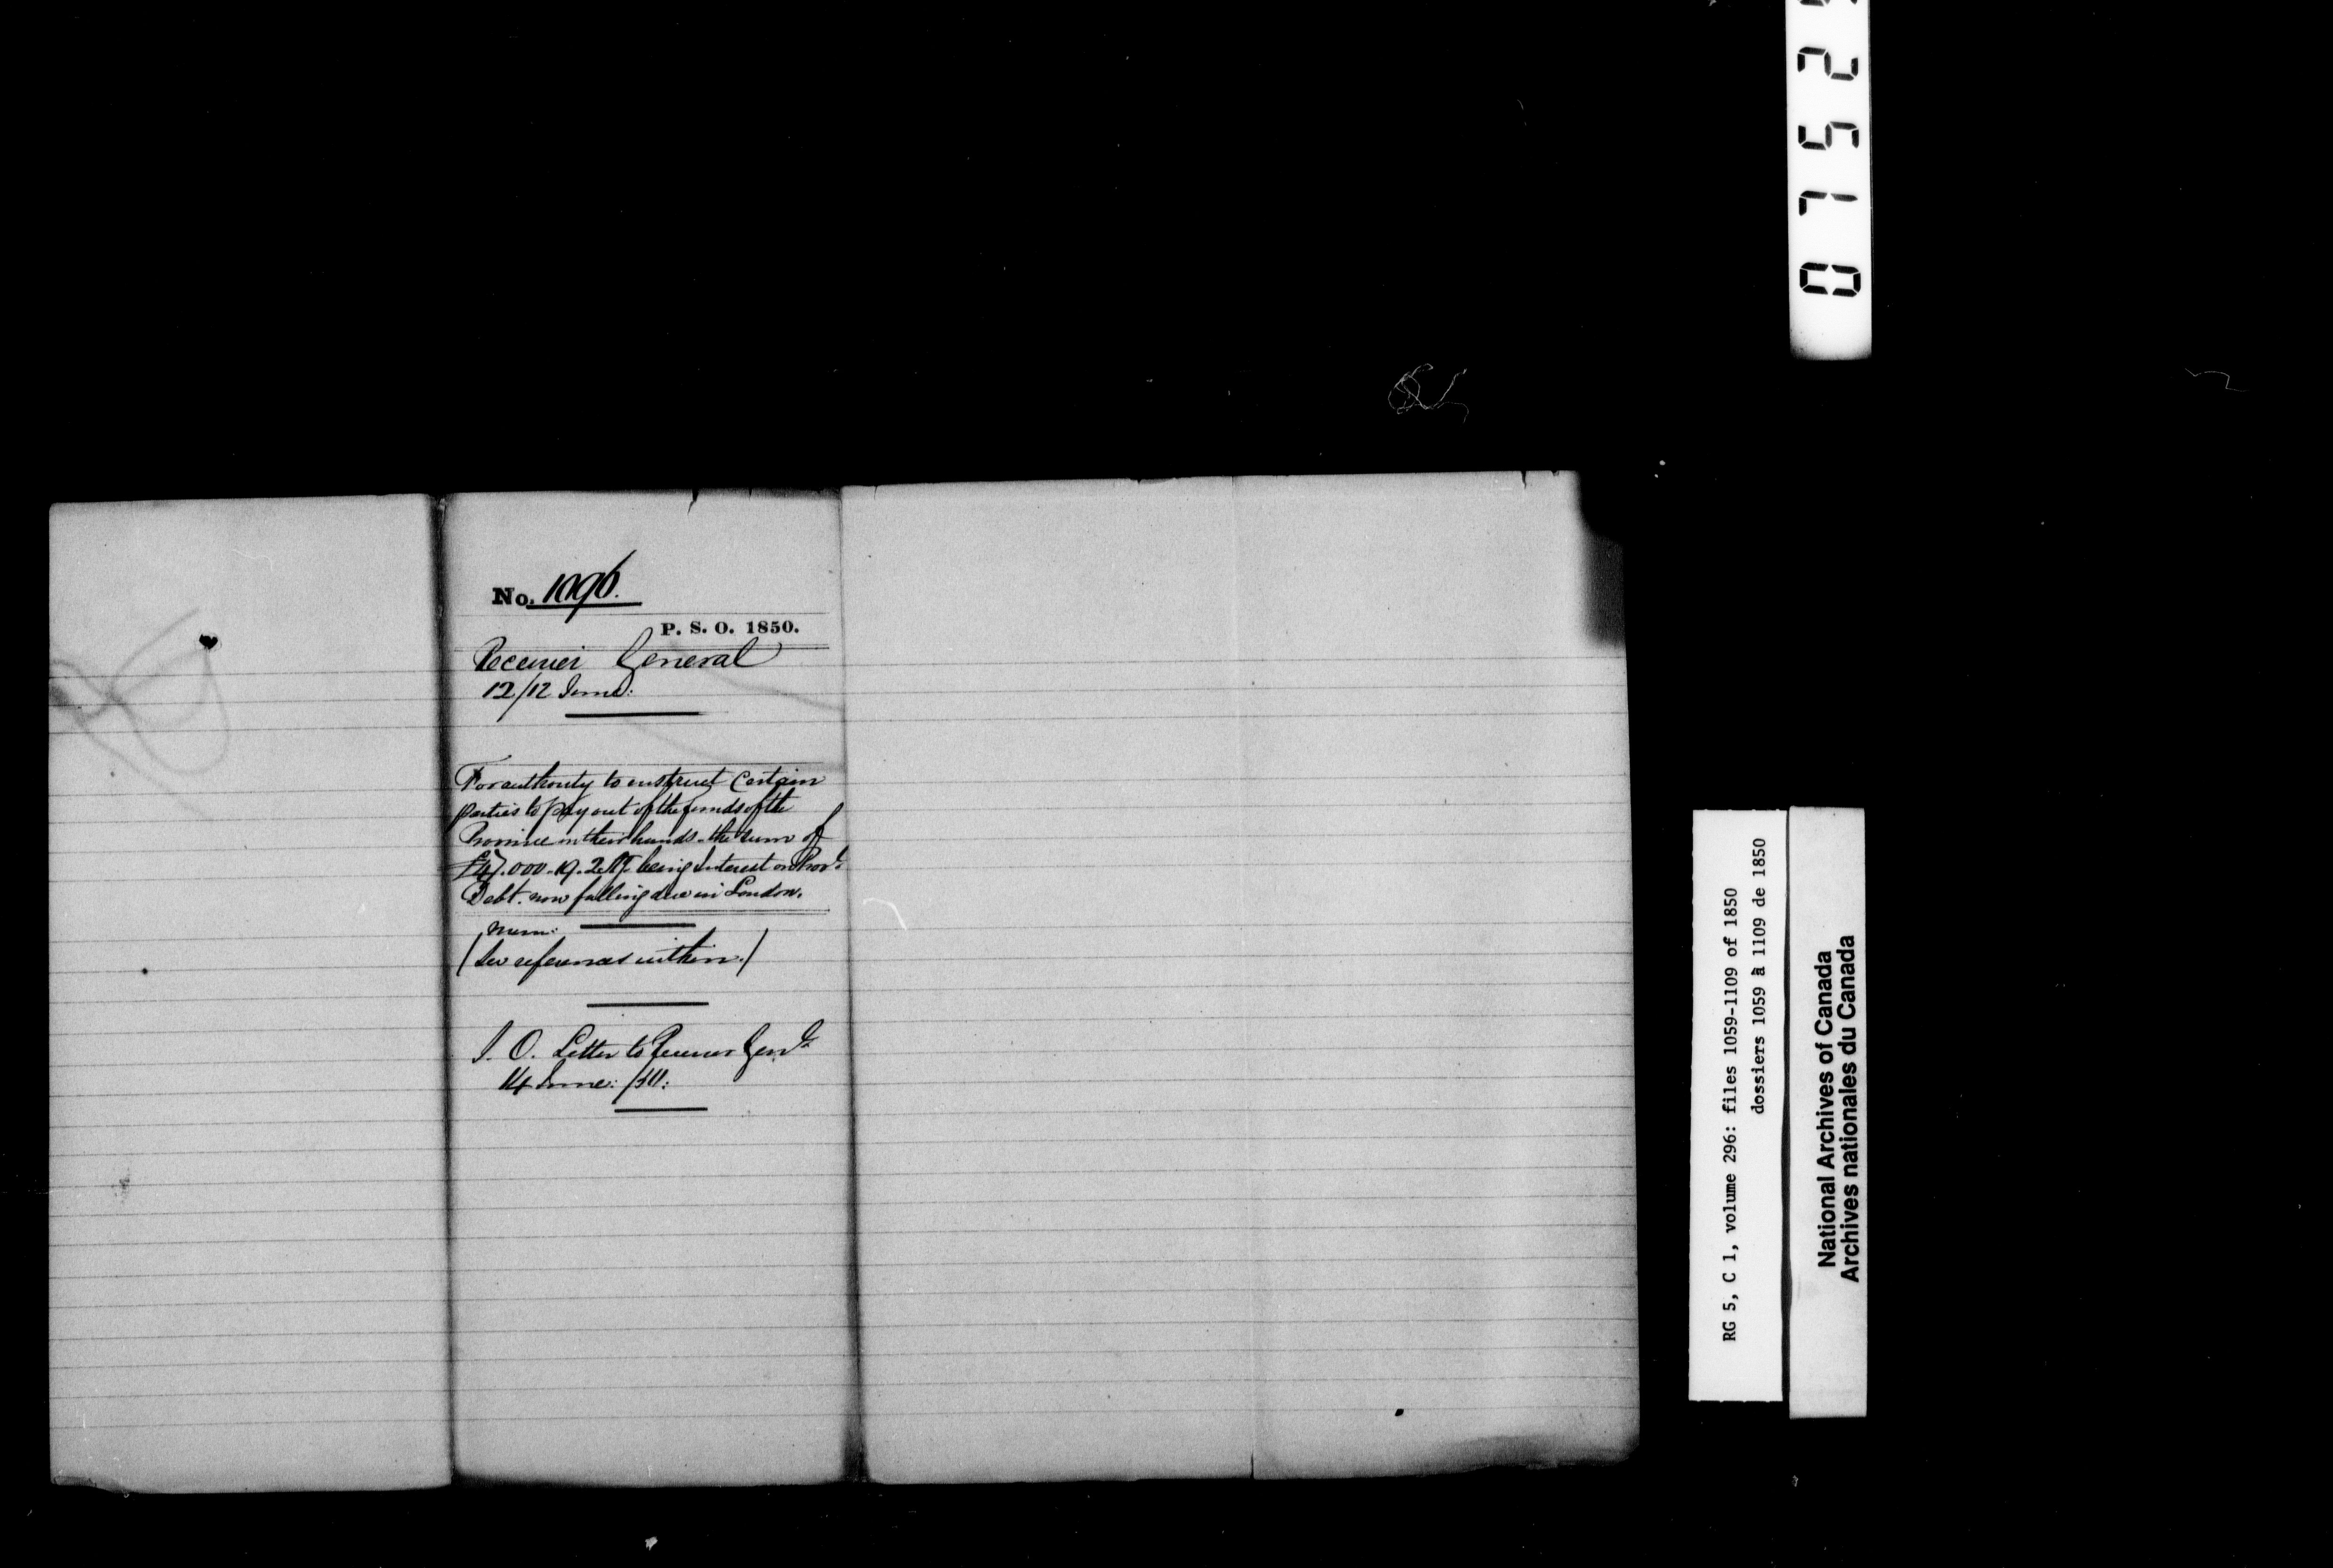 No. 1096.
P. S. O. 1850.
Receiver General
12/12 June:
For authority to instruct Certain
parties to pay out of the funds of the
Province in their hands - the sum of
£47.000-19.2 Stg being Interest on Prov.l
Debt. now falling due in London.
Mem:
(See references within.)
Letter to Receiver Gen.l
14 June: /50:
RG 5, C 1, volume 296: files 1059-1109 of 1850
dossiers 1059 à 1109 de 1850
National Archives of Canada
Archives nationales du Canada
0752